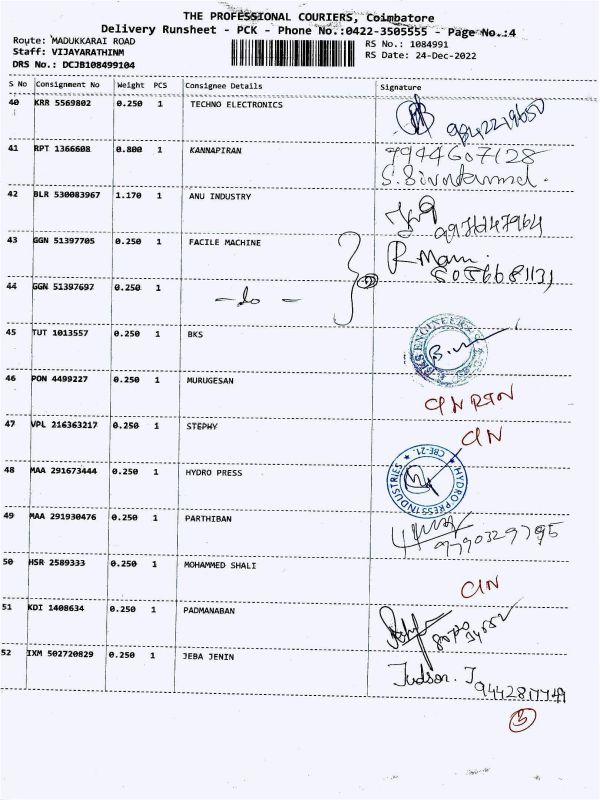 THE PROFESSIONAL COURIERS, Coimbatore
Delivery Runsheet - PCK - Phone No.:0422-3505555 - Page No.:4
Route: MADUKKARAI ROAD
RS No.: 1084991
Staff: VIJAYARATHINM
RS Date: 24-Dec-2022
DRS No.: DCJB108499104
S No Consignment No Weight PCS Consignee Details Signature
40 KRR 5569802 0.250 1 TECHNO ELECTRONICS
41 RPT 1366608 0.800 1 KANNAPIRAN 9944607128
42 BLR 530083967 1.170 1 ANU INDUSTRY
43 GGN 51397705 0.250 1 FACILE MACHINE R Mani 8056681131
44 GGN 51397697 0.250 1 - do -
45 TUT 1013557 0.250 1 BKS
46 PON 4499227 0.250 1 MURUGESAN
47 VPL 216363217 0.250 1 STEPHY
48 MAA 291673444 0.250 1 HYDRO PRESS HYDRO PRESS INDUSTRIES CBE-21.
49 MAA 291930476 0.250 1 PARTHIBAN
50 HSR 2589333 0.250 1 MOHAMMED SHALI
51 KDI 1408634 0.250 1 PADMANABAN
52 IXM 502720829 0.250 1 JEBA JENIN Judson. J